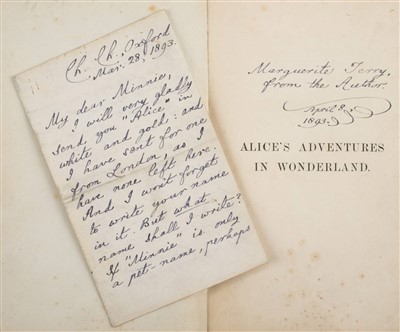 Ch. Ch. Oxford
Mar. 28, 1893.
My dear Minnie,
I will very gladly
send you "Alice" in
white and gold: and
I have sent for one
from London, as I
have none left here.
And I won't forget
to write your name
in it. But what
name shall I write?
If "Minnie" is only
a pet-name, perhaps
Marguerite Terry,
from the Author.
April 8,
1893.
ALICE'S ADVENTURES
IN WONDERLAND.